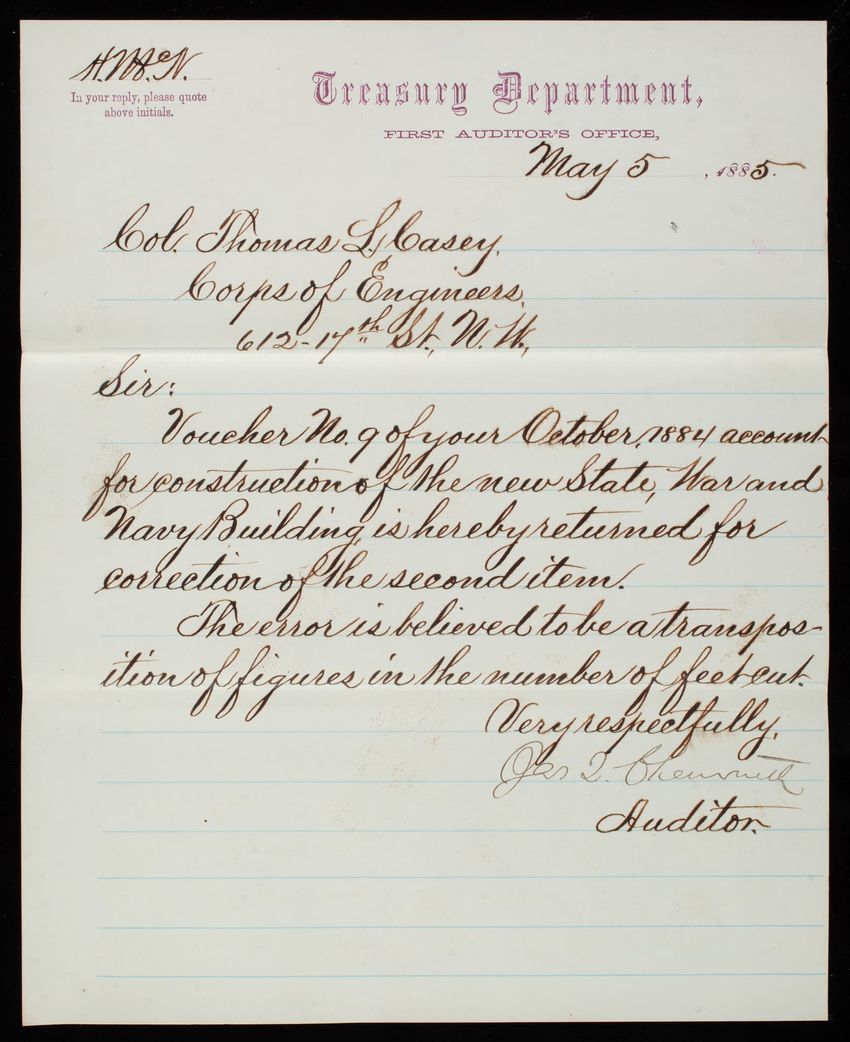 H.M.N.
In your reply, please quote
above initials.
Treasury Department,
FIRST AUDITOR'S OFFICE,
May 5, 1885.
Col. Thomas L. Casey,
Corps of Engineers,
612-17th St., N.W.,
Sir:
Voucher No. 9 of your October, 1884 account
for construction of the new State, War and
Navy Building, is hereby returned for
correction of the second item.
The error is believed to be a transpos-
ition of figures in the number of feet cut.
Very respectfully,
Jas Q. Chenowith
Auditor.